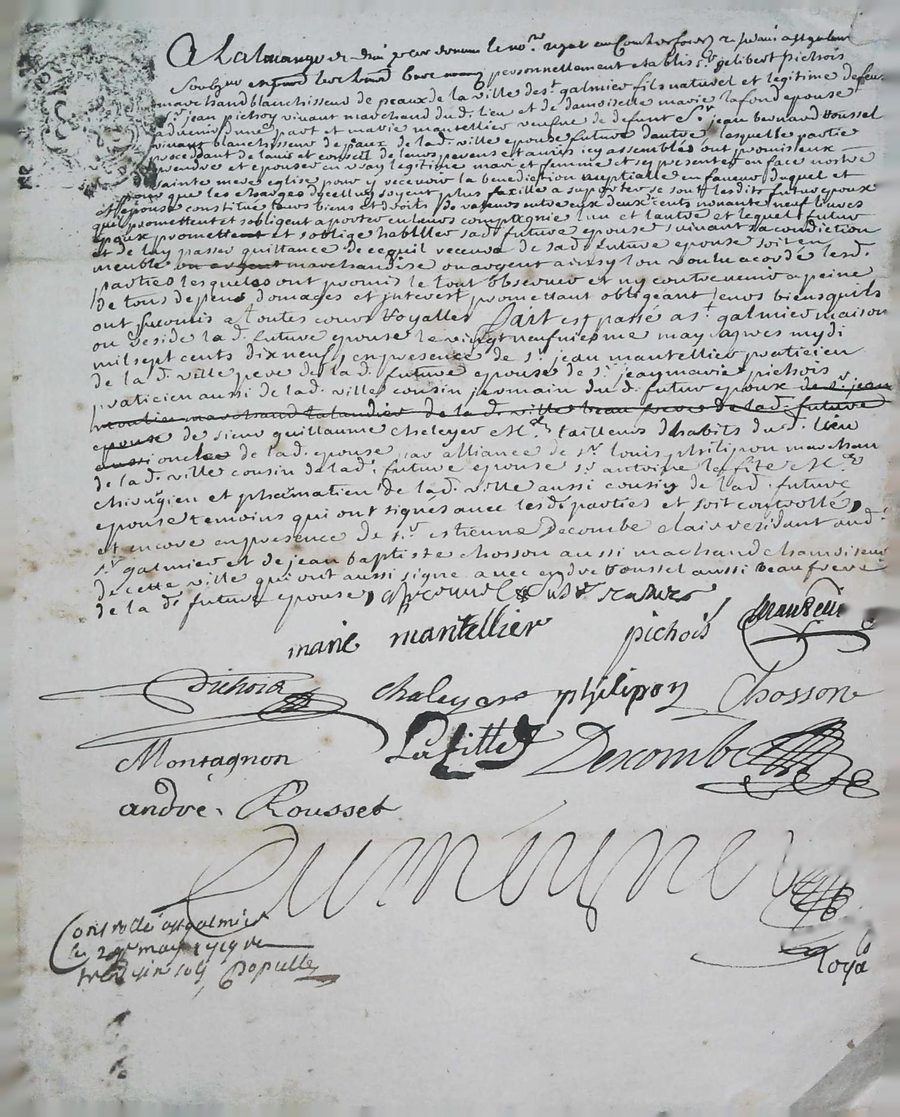 A la louange de dieu par devant le no.re royal en Comté de forez residant a st galmier
soubsigne personnellement establis sr. gelibert pichois
marchand blanchisseur de peaux de la ville de st. galmier fils naturel et legitime de feu
sr. jean pichoy vivant marchand du d. lieu et de damoiselle marie lafond epouse
advenir d'une part et marie mantellier veufue de defunt sr. jean bernard Rousset
vivant blanchisseur de paux de la d. ville epouse future dautre lesquelle partie
procedant de lauis et conseil de leurs parens et amis icy assemblés ont promis eux
prendre et epouser en vray legitime mari et femme et se presenter en face nostre
sainte mere eglise pour y recevoir la benediction nuptialle en faueur duquel et
pour que les charges dycelluy soyent plus faxille a suporter se sont lesdits futur epoux
et epouse constitué leurs biens et droits De valeurs entre eux deux cents nonante neuf liures
quil promettent et sobligent aporter en leurs compagnie lun et lautre et lequel futur
epoux promettent et soblige habiller sa d. future epouse suivant sa condiction
et de luy passer quittance de ce quil receura de sa d. future epouse soit en
meuble ou argent marchandise ou argent ainsy lon voulu acordé les d.
parties lesquels ont promis le tout observer et ny contreuenir a peine
de tous depens domages et interest promettant obligeant leurs biens quils
ont soumis a toutes cours Royalles fait et passé a st. galmier maison
ou reside la d. future epouse le vingt neufuiesme may apres mydi
mil sept cents dix neuf en presence de sr. jean mantellier praticien
de la d. ville pere de la d. future epouse de sr. jeay marie pichois
praticien aussi de la d. ville cousin jermain du d. futur epoux de sr. jean
moulin marchand talandier de la d. ville beau frere de la d. future
epouse de sieur guillaume cheleyer Me. tailleur dhabits du d. lieu
aussi oncle de la d. epouse par alliance de sr. louis philipon marchan
de la d. ville cousin de la d. future epouse sr. antoine lafite Me.
chirurgien et pharmatien de la d. ville aussi cousin de la d. future
epouse temoins qui ont signes auec les ds parties et soit controllé,
et encore en presence de sr. estienne Decombe clair residant aud.
st. galmier et de jean baptiste chosson aussi machand chamoiseur
de cette ville qui ont aussi signe auec endre Rousset aussi beau frere
de la d. future epouse,
marie mantellier pichois Mantellier
Pichois chaleyer philipon Chosson
Montagnon Lafitte Decombe
andre Rousset
Dumeynet
royal
Controllé a st galmier
le 29e may 1719 re
treize sols Populle